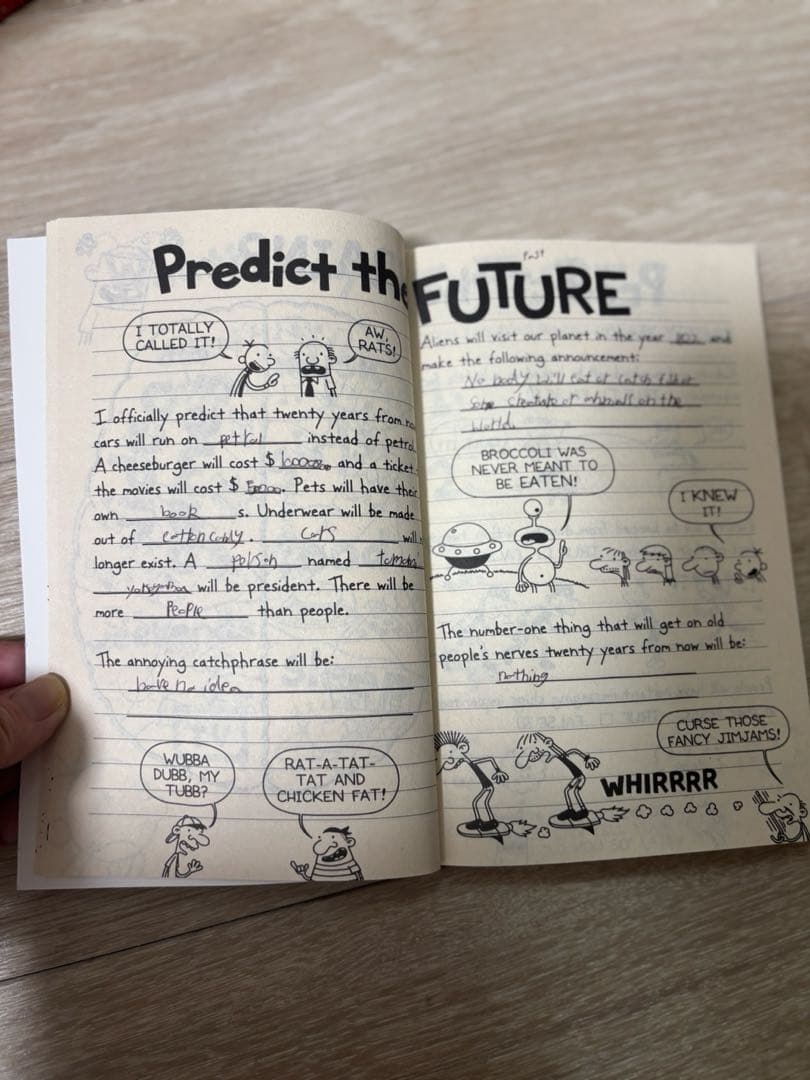 Predict the
I TOTALLY
CALLED IT!
AW,
RATS!
I officially predict that twenty years from
cars will run on petrol instead of petro
A cheeseburger will cost $ and a ticket
the movies will cost $ . Pets will have their
own book s. Underwear will be made
out of . cats will
longer exist. A named
will be president. There will be
more People than people.
The annoying catchphrase will be:
have no idea
WUBBA
DUBB, MY
TUBB?
RAT-A-TAT-
TAT AND
CHICKEN FAT!
Past
FUTURE
Aliens will visit our planet in the year and
make the following announcement:
No body will eat or catch
or on the
World.
BROCCOLI WAS
NEVER MEANT TO
BE EATEN!
I KNEW
IT!
The number-one thing that will get on old
people's nerves twenty years from now will be:
nothing
CURSE THOSE
FANCY JIMJAMS!
WHIRRRR